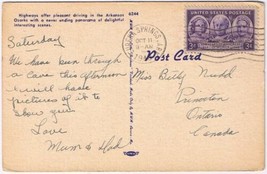 Highways offer pleasant driving in the Arkansas
Ozarks with a never ending panorama of delightful
interesting scenes.
Saturday
We have been through
a Cave this afternoon
I will have
pictures of it to
show you
Love
Mum & Dad
Post Card
SPRINGS
OCT 11
9-AM
UNITED STATES POSTAGE
3¢
Miss Betty Nudd
Princeton
Ontario
Canada